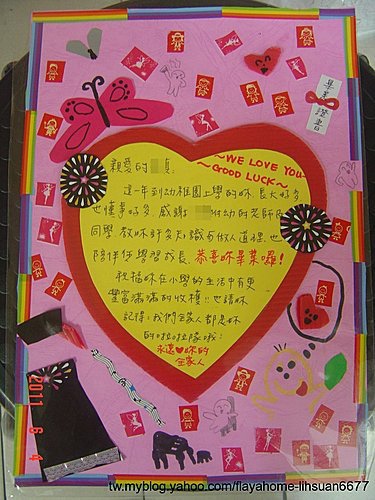 畢業證書
~WE LOVE YOU~
~GOOD LUCK~
親愛的
這一年到幼稚園上學的妳，長大好多
也懂事好多，感謝 幼的老師與
同學，教妳許多知識与做人道理，也
陪伴你學習成長，恭喜妳畢業囉！
祝福妳在小學的生活中有更
豐富滿滿的收穫!! 也請妳
記得：我們全家人都是妳
的啦啦隊哦！
永遠♥妳的
全家人
2011 6 4
tw.myblog.yahoo.com/flayahome-lihsuan6677